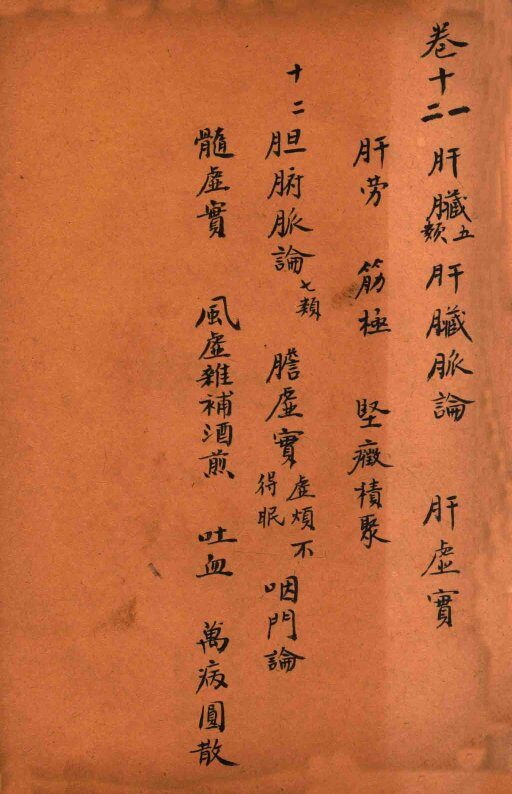 卷十一二 肝臟五類 肝臟脈論 肝虛實
肝劳 筋極 堅癥積聚
十二 胆腑脈論七類 膽虛實虛煩不得眠 咽門論
髓虛實 風虛雜補酒煎 吐血 萬病圓散